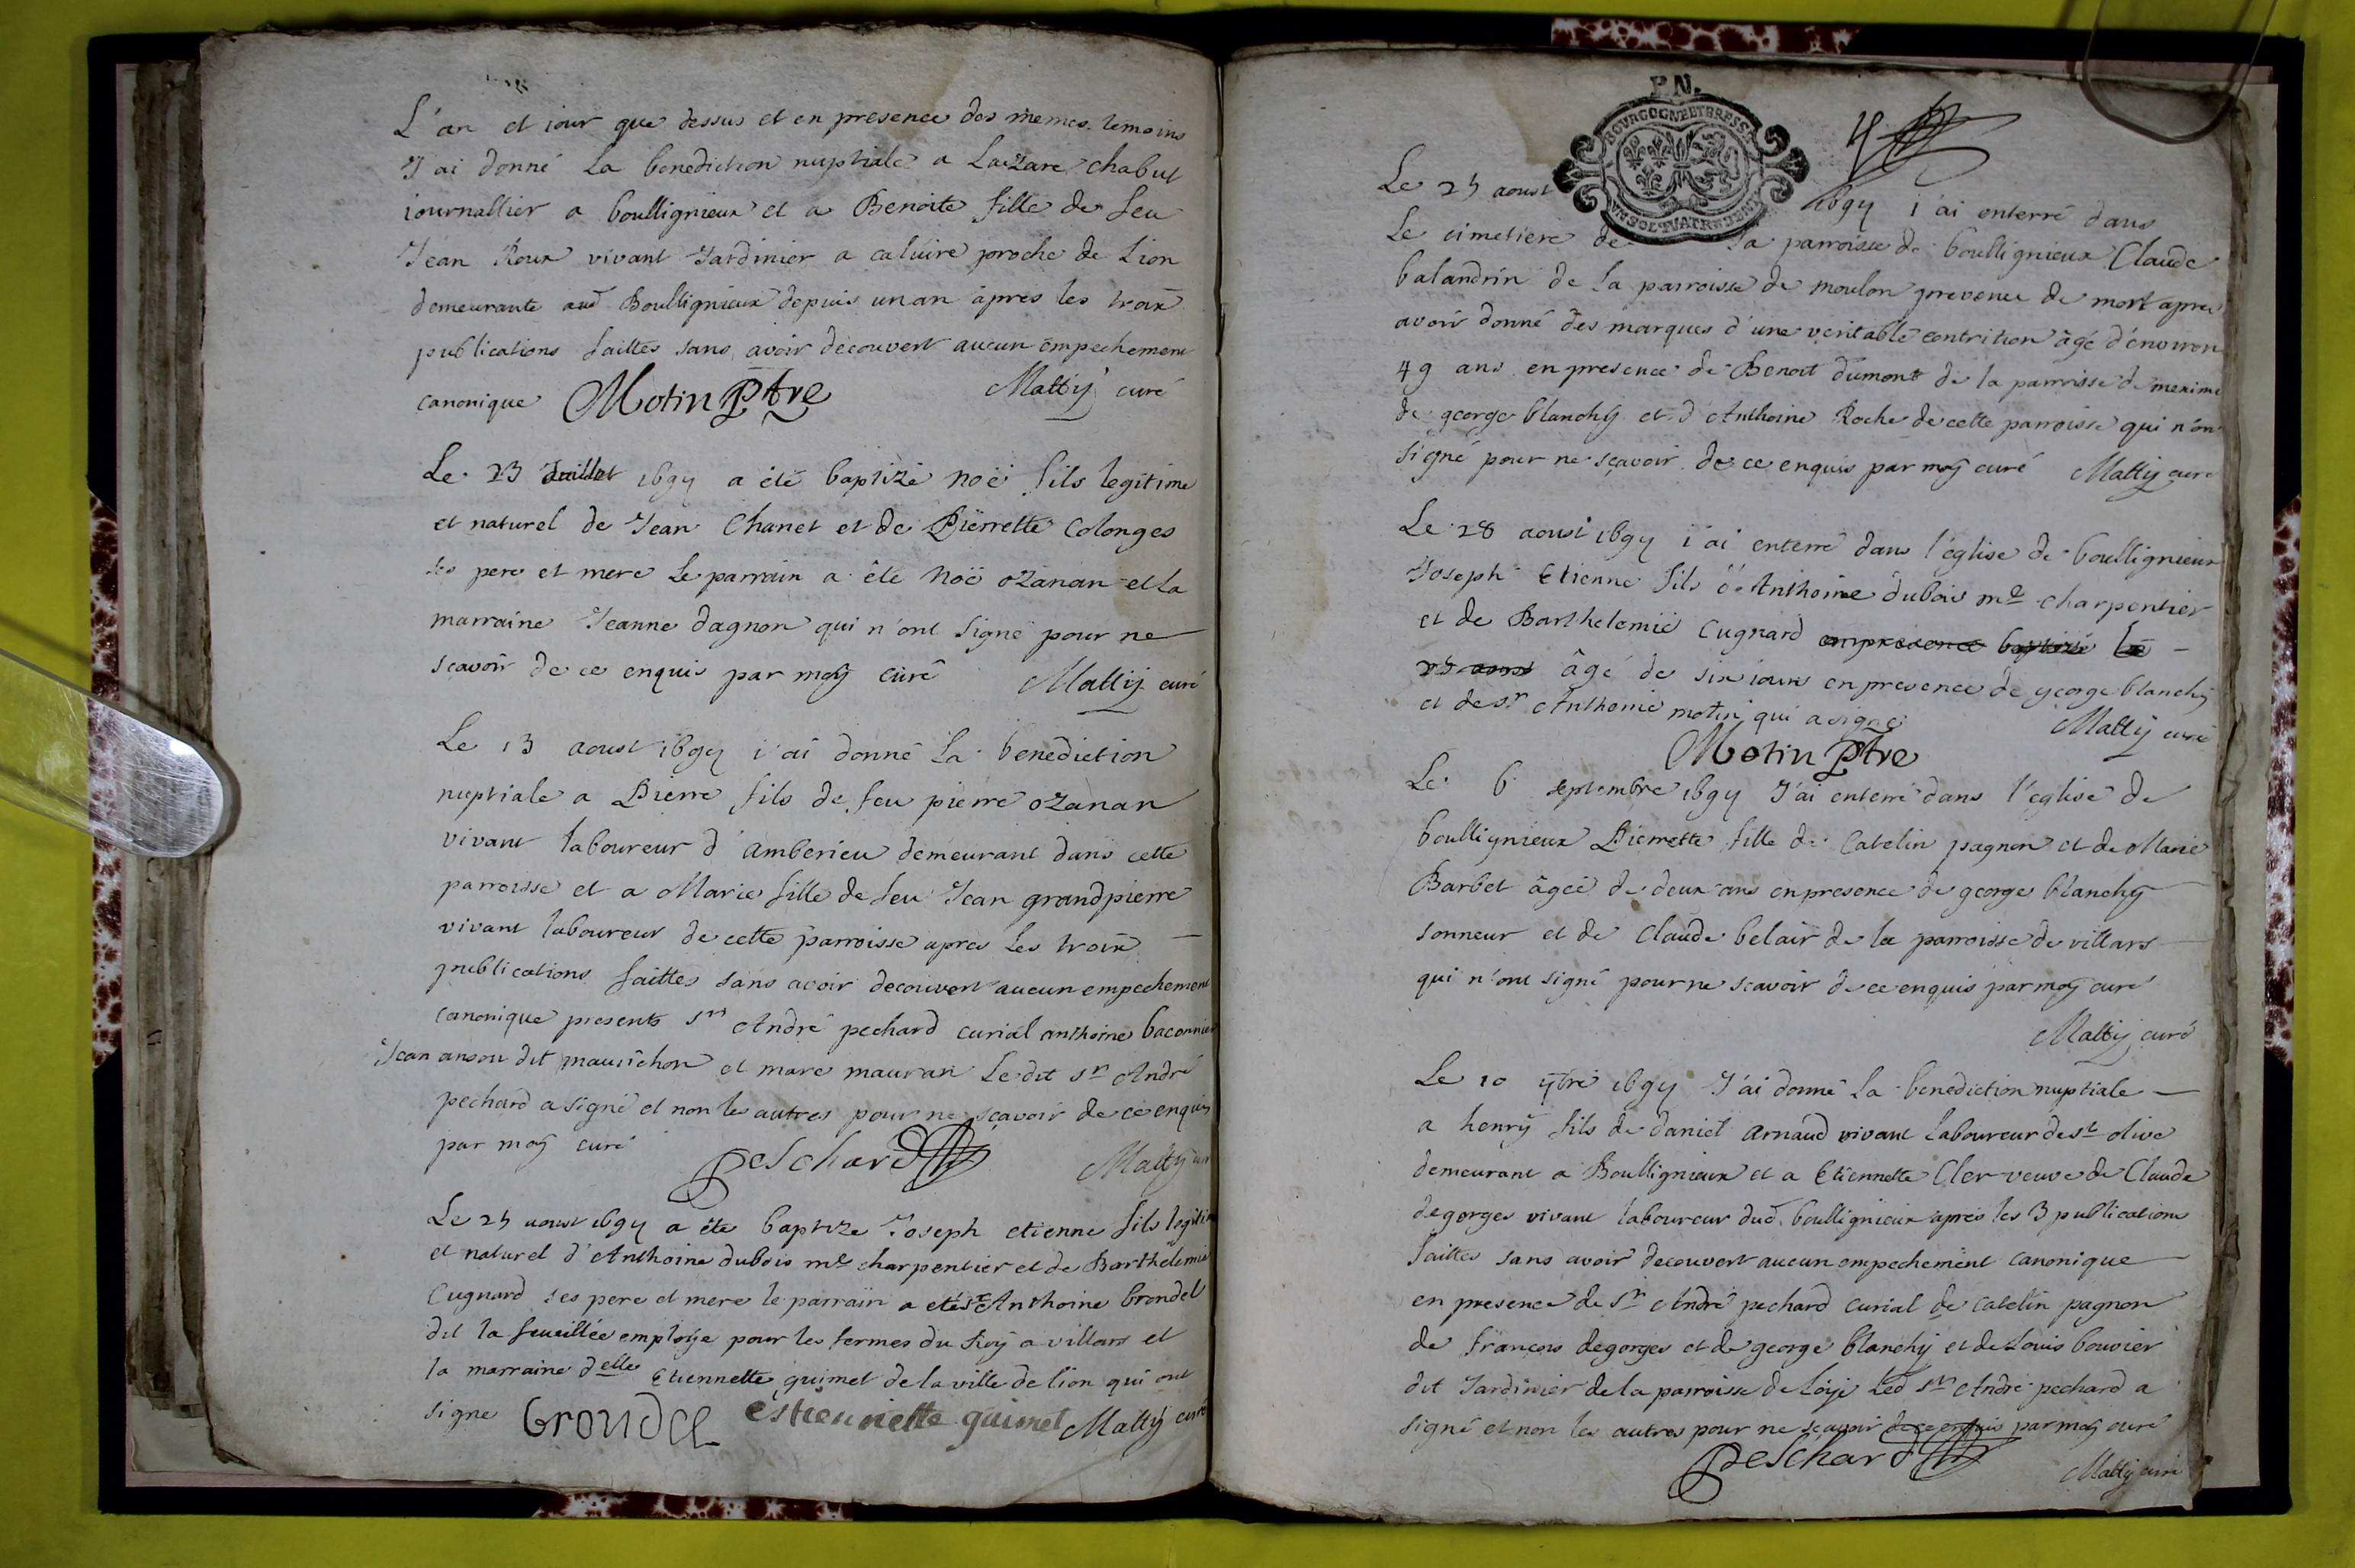 L'an et iour que dessus et en presence des mêmes temoins
J'ai donné la benediction nuptiale a Lazare chabut
iournallier a boullignieux et a Benoite fille de feu
Jean Roux vivant Jardinier a caluire proche de Lion
demeurante aud Boullignieux depuis un an âpres les trois
publications faittes sans avoir decouvert aucun empechement
canonique Motin Ptre Mattÿ curé
Le 23 Juillet 1694 a été baptizé noë fils legitime
et naturel de Jean Chanet et de Pierrette Colonges
ses pere et mere le parrain a été Noë ozanan et la
marraine Jeanne dagnon qui n'ont signé pour ne
scavoir de ce enquis par moÿ curé Mattÿ curé
Le 13 aoust 1694 i'ai donné la benediction
nuptiale a Pierre fils de feu pierre ozanan
vivant laboureur d'amberieu demeurant dans cette
parroisse et a Marie fille de feu Jean grandpierre
vivant laboureur de cette parroisse apres les trois
publications faittes sans avoir decouvert aucun empechement
canonique presents srs André pechard curial anthoine baconnier
Jean dit et marc mauran Le dit sr André
pechard a signé et non les autres pour ne scavoir de ce enquis
par moÿ curé Peschard Mattÿ curé
Le 25 aoust 1694 a été baptize Joseph etienne fils legitime
et naturel d'Anthoine dubois me charpentier et de Barthelemie
Cugnard ses pere et mere le parrain a été sr Anthoine brondel
dit la feuillée employe pour les fermes du Roÿ a villars et
la marraine delle Etiennette guimet de la ville de lion qui ont
signe Brondel estiennette guimet Mattÿ curé
P.N.
BOURGOGNE ET BRESSE
Le 25 aoust 1694 i'ai enterré dans
Le cimetiere de la parroisse de boullignieux Claude
balandrin de la parroisse de moulon prevenu de mort apres
avoir donné des marques d'une veritable contrition âgé d'environ
49 ans en presence de Benoit dumont de la parroisse de
de george blanchÿ et d'Anthoine Roche de cette parroisse qui n'on
signé pour ne scavoir de ce enquis par moÿ curé Mattÿ curé
Le 28 aoust 1694 i'ai enterré dans l'église de boullignieux
Joseph Etienne fils d'Anthoine dubois me charpentier
et de Barthelemie Cugnard en presence baptizé le
25 aoust âgé de six iours en presence de george blanchÿ
et de sr Anthoine motin qui a signé Mattÿ curé
Motin Ptre
Le 6 septembre 1694 J'ai enterré dans l'eglise de
boullignieux Pierrette fille de Catelin pagnon et de Marie
Barbet âgée de deux ans en presence de george blanchÿ
sonneur et de Claude belair de la parroisse de villars
qui n'ont signé pour ne scavoir de ce enquis par moÿ curé
Mattÿ curé
Le 10 7bre 1694 J'ai donné la benediction nuptiale
a henrÿ fils de daniel Arnaud vivant laboureur de st olive
demeurant a Boullignieux et a Etiennette Cler veuve de Claude
degorges vivant laboureur dud. boullignieux apres les 3 publications
faittes sans avoir decouvert aucun empechement canonique
en presence de sr André pechard curial de Catelin pagnon
de françois degorges et de george blanchÿ et de Louis bouvier
dit Jardinier de la parroisse de Loye led sr André pechard a
signé et non les autres pour ne scavoir de ce enquis par moÿ curé
Peschard Mattÿ curé